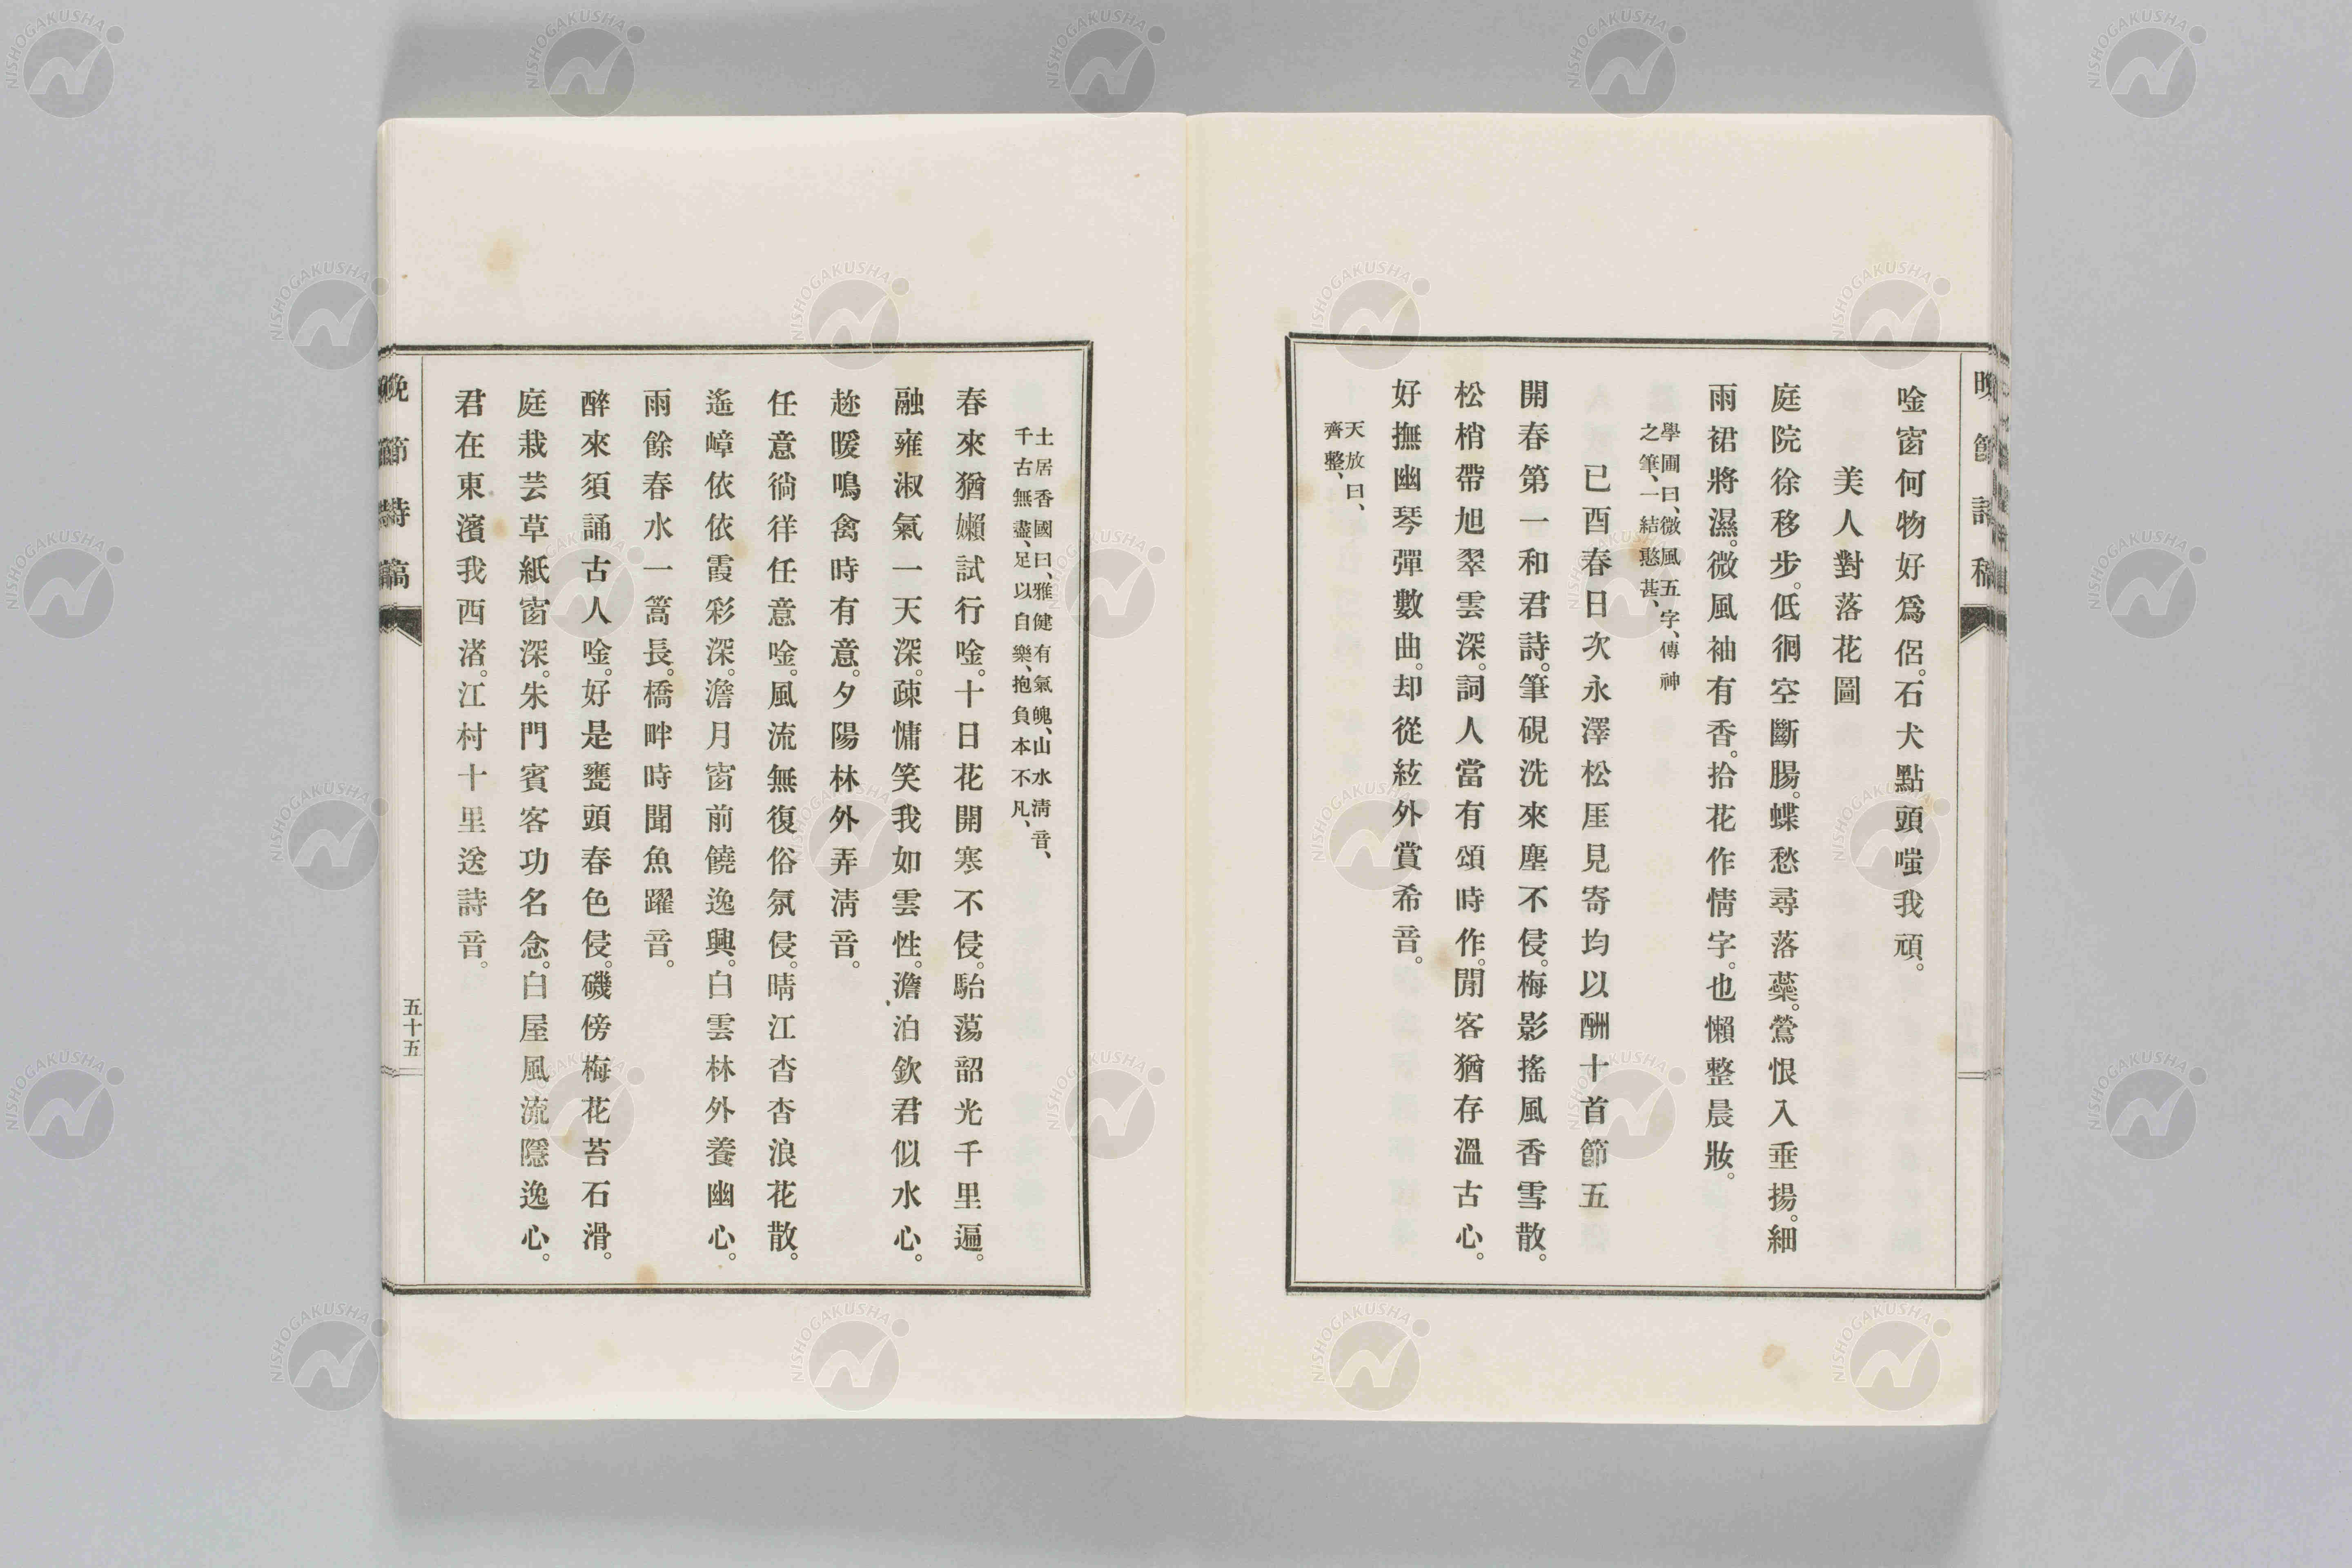 晚節詩稿
唫窗何物好爲侶。石犬點頭嗤我頑。
美人對落花圖
庭院徐移步。低徊空斷腸。蝶愁尋落蘂。鶯恨入垂揚。細
雨裙將濕。微風袖有香。拾花作情字。也懶整晨妝。
學圃曰、微風五字、傳神
之筆、一結憨甚、
已酉春日次永澤松厓見寄均以酬十首節五
開春第一和君詩。筆硯洗來塵不侵。梅影搖風香雪散。
松梢帶旭翠雲深。詞人當有頌時作。閒客猶存溫古心。
好撫幽琴彈數曲。却從絃外賞希音。
天放曰、
齊整、
土居香國曰、雅健有氣魄、山水淸音、
千古無盡、足以自樂、抱負本不凡、
春來猶嬾試行唫。十日花開寒不侵。駘蕩韶光千里遍。
融雍淑氣一天深。疎慵笑我如雲性。澹泊欽君似水心。
趂暖鳴禽時有意。夕陽林外弄淸音。
任意徜徉任意唫。風流無復俗氛侵。晴江杳杳浪花散。
遙嶂依依霞彩深。澹月窗前饒逸興。白雲林外養幽心。
雨餘春水一篙長。橋畔時聞魚躍音。
醉來須誦古人唫。好是甕頭春色侵。磯傍梅花苔石滑。
庭栽芸草紙窗深。朱門賓客功名念。白屋風流隱逸心。
君在東濱我西渚。江村十里送詩音。
晚節詩稿
五十五
NISHOGAKUSHA